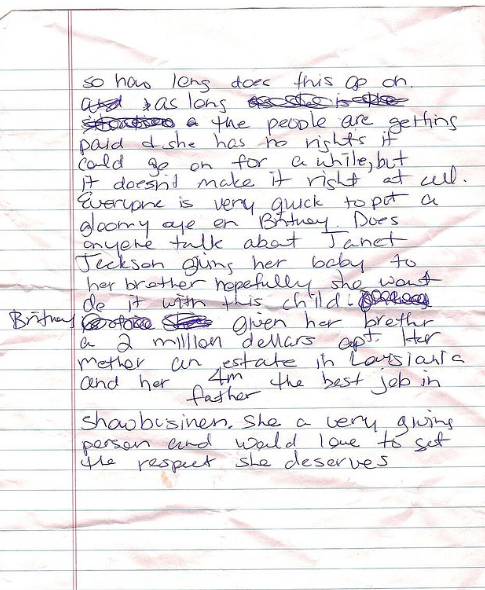 so how long does this go on.
as long
the people are getting
paid & she has no rights it
could go on for a while, but
it doesn't make it right at all.
Everyone is very quick to put a
gloomy eye on Britney. Does
anyone talk about Janet
Jackson giving her baby to
her brother hopefully she wont
do it with this child.
Britney given her brother
a 2 million dollars apt. Her
mother an estate in Louisiana
and her 4m the best job in
father
showbusiness. She a very giving
person and would love to get
the respect she deserves